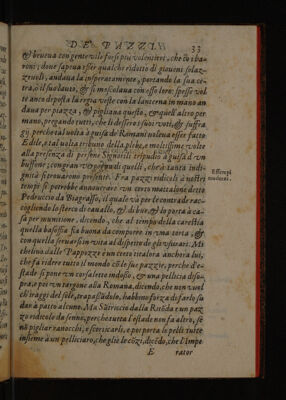 DE PAZZI.
33
& beueua con gente vile forsi piu volentieri, che cō i ba-
roni; doue sapeua esser qualche ridotto di giaueni solaz-
zeuoli, andaua la insperatamente, portando la sua ce-
tra, ò il suo liuto, & si mescolaua con esso loro: spesse vol
te anco deposta la regia veste con la lanterna in mano an
daua per piazza, & pigliaua questo, & quell' altro per
mano, pregando tutti, che li dessero i suoi voti, & suffra
gij, perche tal volta à guisa de Romani voleua esser fatto
Edile, e tal volta tribuno della plebe, e moltissime volte
alla presenza di persone Signorili tripudiò à guisa d'vn
buffone; con gran vergogna di quelli, che à tanta indi-
gnità si trouarono presenti. Fra pazzi ridicoli à nostri
tempi si potrebbe annouerare vn certo mattalone detto
Pedruccio da Biagrasso, il quale và per le contrade rac-
cogliendo lo sterco di cauallo, & di bue, & lo porta à ca-
sa per munitione, dicendo, che al tempo della carestia
quella basoffia sia buona da comporre in vna torta, &
con quella seruarsi in vita al dispetto de gli vsurari. Mi
chelino dalle Pappozze è un certo titalora anchora lui,
che fa ridere tutto il mondo cō le sue pazzie, perche d'e-
state si pone vn corsaletto indosso, & una pelliccia diso-
pra, e poi vn targone alla Romana, dicendo, che non vuol
ch' i raggi del sole, trapassādolo, habbino forza di farlo su
dar à patto alcuno. Ma
Essempi
moderni.
zo ridicolo da senno, perche tutta l'estade non fa altro, se
nō pigliar ranocchi, e scorticarli, e poi porta le pelli tutte
insieme à un pellicciaro, che glie le cōzi, dicēdo, che l'Impe
E
rator